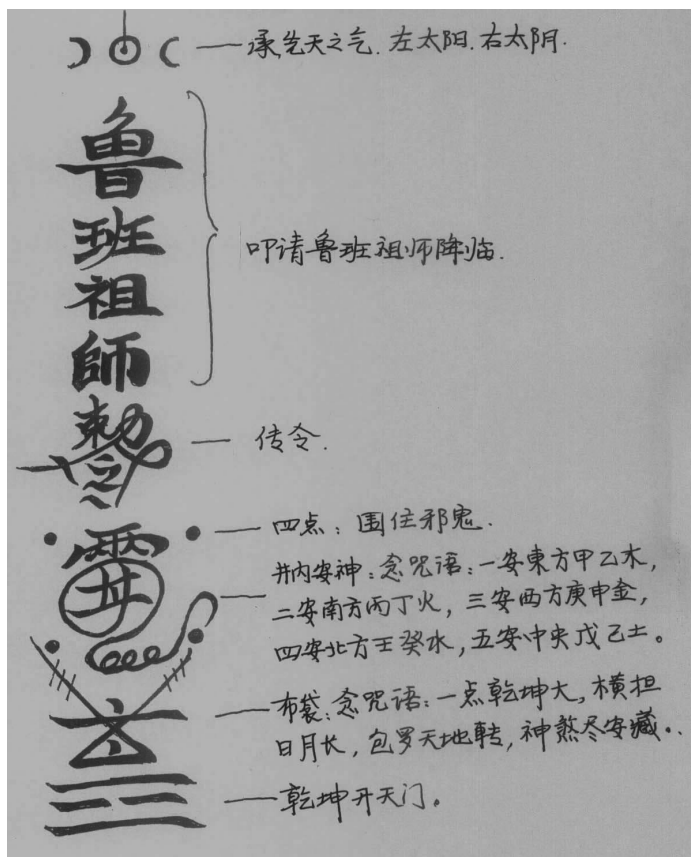 承先天之气.左太阳.右太阴.
魯班祖師
叩请鲁班祖师降临.
勅令
传令.
四点：围住邪鬼.
井内安神：念咒语：一安東方甲乙木，
二安南方丙丁火，三安西方庚申金，
四安北方壬癸水，五安中央戊己土。
布袋：念咒语：一点乾坤大，横担
日月长，包罗天地转，神煞尽安藏..
乾坤开天门。